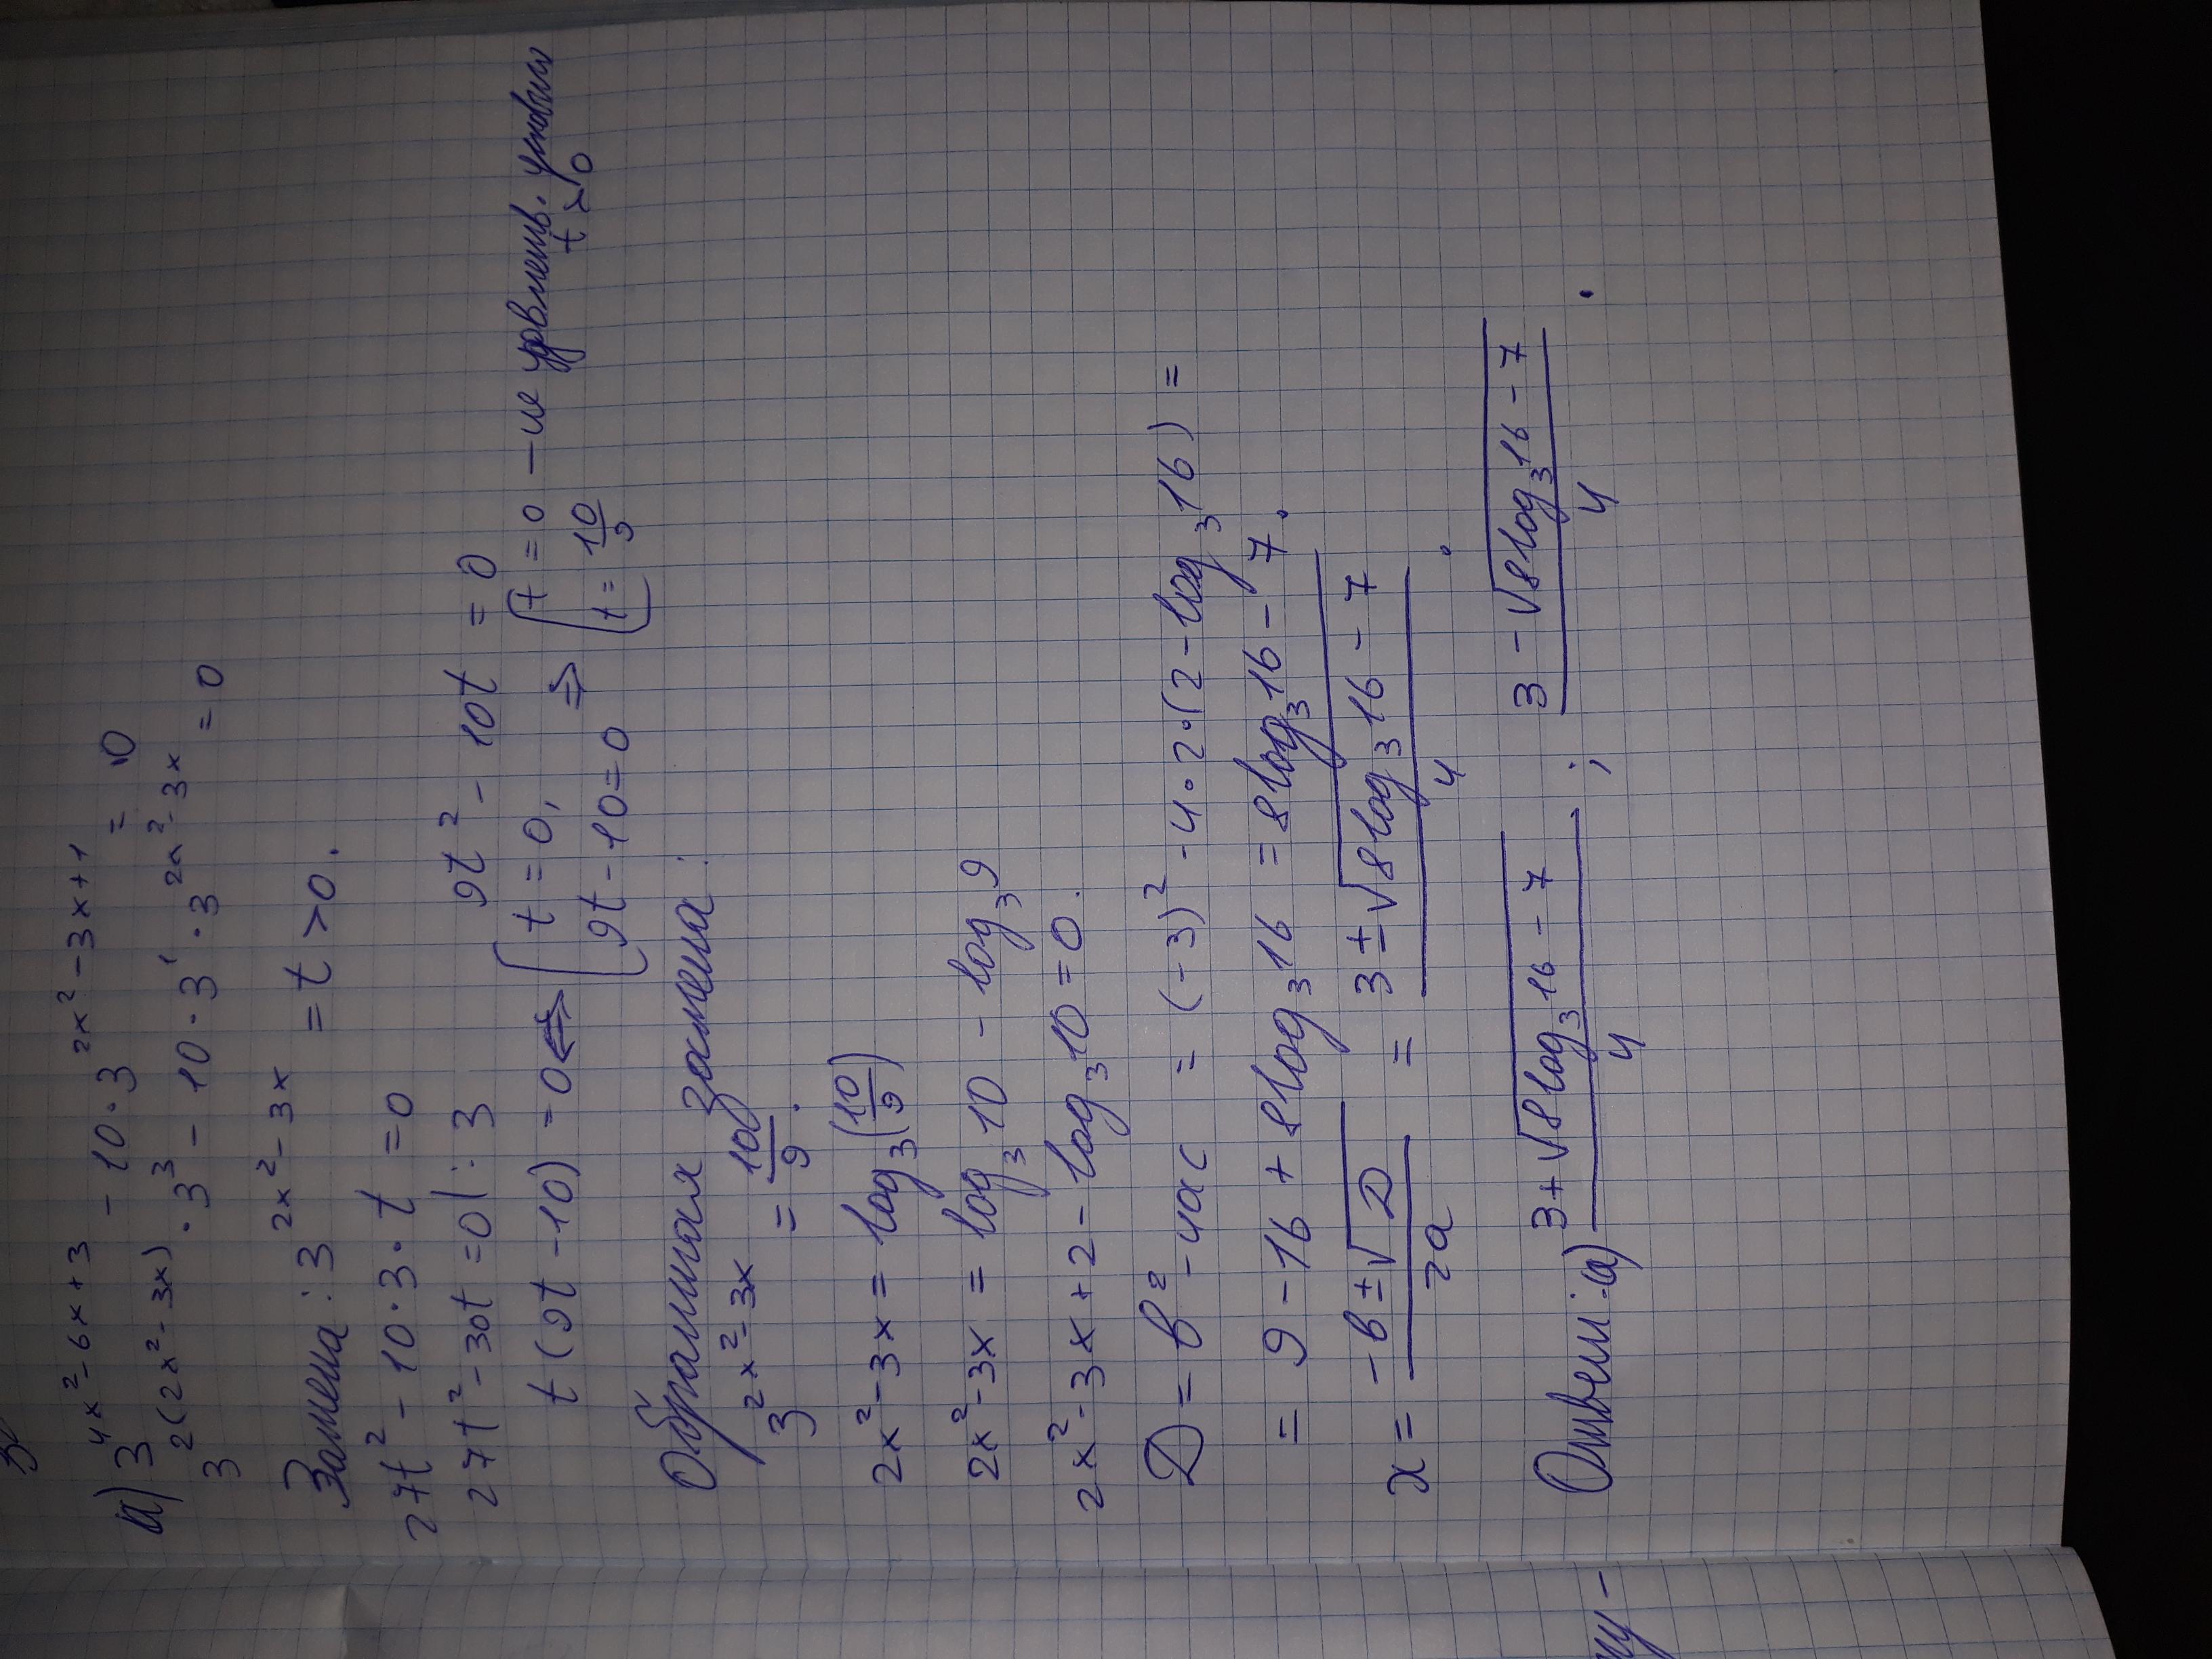 а) 3^{4x²-6x+3} - 10·3^{2x²-3x+1} = 0
3^{2(2x²-3x)}·3³ - 10·3¹·3^{2x²-3x} = 0
Замена: 3^{2x²-3x} = t > 0.
27t² - 10·3·t = 0
27t² - 30t = 0 |:3 9t² - 10t = 0
t(9t - 10) = 0 ⇔ [t = 0, 9t - 10 = 0 ⇒ [t = 0 - не удовлетв. условию t > 0 t = 10/9
Обратная замена:
3^{2x²-3x} = 10/9.
2x² - 3x = log₃(10/9)
2x² - 3x = log₃10 - log₃9
2x² - 3x + 2 - log₃10 = 0.
D = b² - 4ac = (-3)² - 4·2·(2 - log₃16) =
= 9 - 16 + 8log₃16 = 8log₃16 - 7.
x = (-b ± √D)/2a = (3 ± √(8log₃16 - 7))/4.
Ответ: а) (3 + √(8log₃16 - 7))/4 ; (3 - √(8log₃16 - 7))/4.